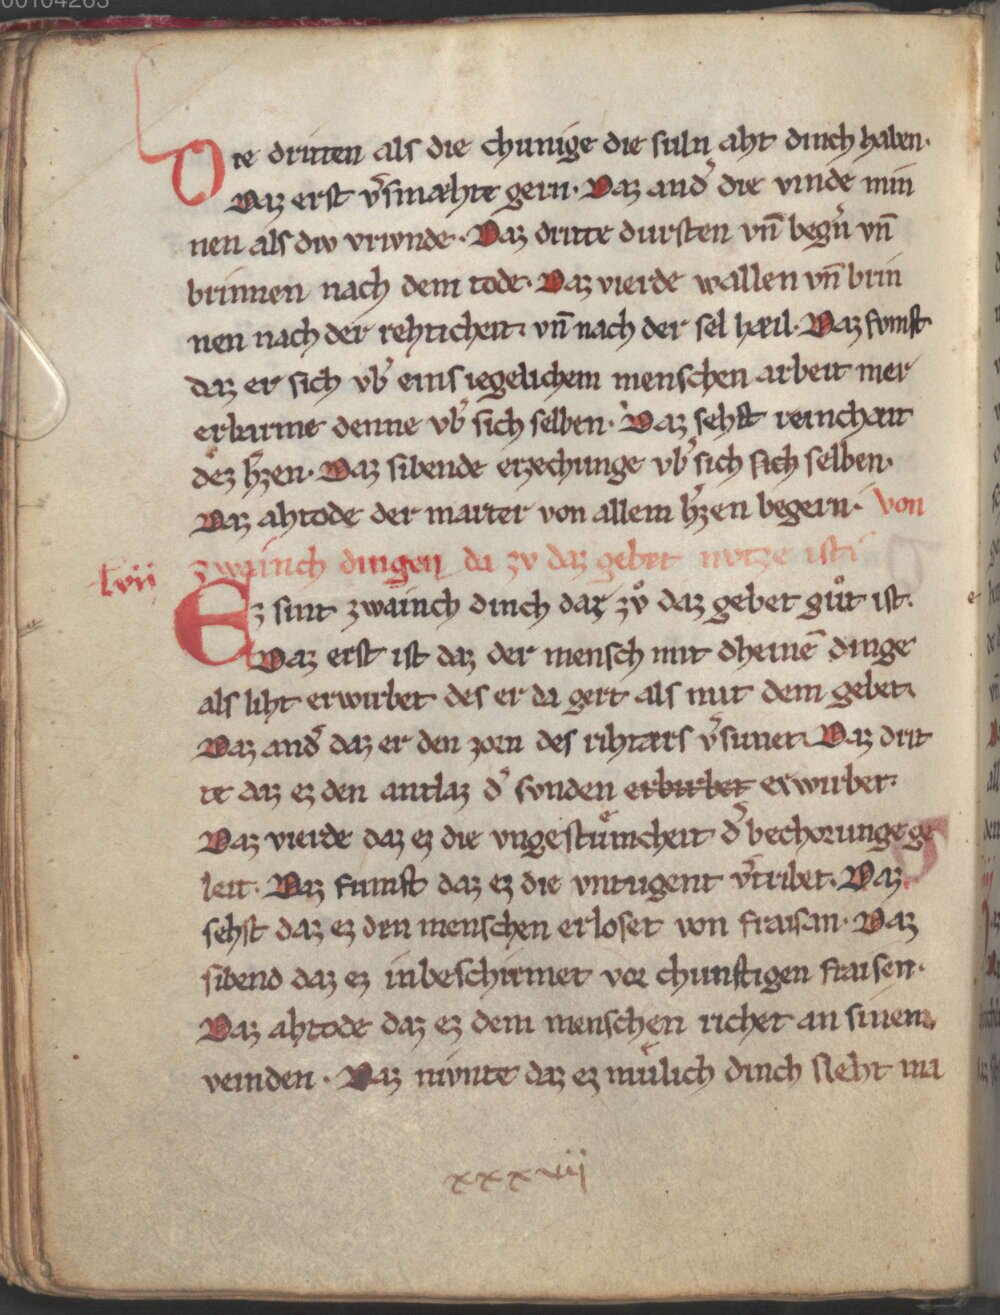 00104263
Die dritten als die chunige die suln aht dinch haben·
Daz erst v̾smæhte gern· Daz and̾ die vinde min
nen als diw vriwnde· Daz dritte dursten vn̄ beg̾n vn̄
brinnen nach dem tode· Daz vierde wallen vn̄ brin
nen nach der rehticheit· vn̄ nach der sel hæil· Daz fvmft
daz er sich vb̾ eins iegelichem menschen arbeit mer
erbarme denne vb̾ sich selben· Daz sehst reinchait
dez h̾zen· Daz sibende erzechunge vb̾ sich sich selben·
Daz ahtode der marter von allem h̾zen begern· von
zwainch dingen da zv daz gebet nvtze ist·
lvii
Ez sint zwainch dinch daz zvͦ daz gebet guͦt ist·
Daz erst ist daz der mensch mit dheinē dinge
als liht erwirbet des er da gert als mit dem gebet·
Daz and̾ daz er den zorn des rihtærs v̾sunet· Daz drit
te daz ez den antlaz d̾ svnden erbirbet erwirbet·
Daz vierde daz ez die vngestuͤmcheit d̾ bechorunge ge
leit· Daz fumft daz ez die vntugent v̾tribet· Daz
sehst daz ez den menschen erloset von fraisan· Daz
sibend daz ez in beschirmet vor chunftigen fraisen·
Daz ahtode daz ez dem menschen richet an sinem
veinden· Daz nivnte daz ez muͤlich dinch sleht ma
xxxviij